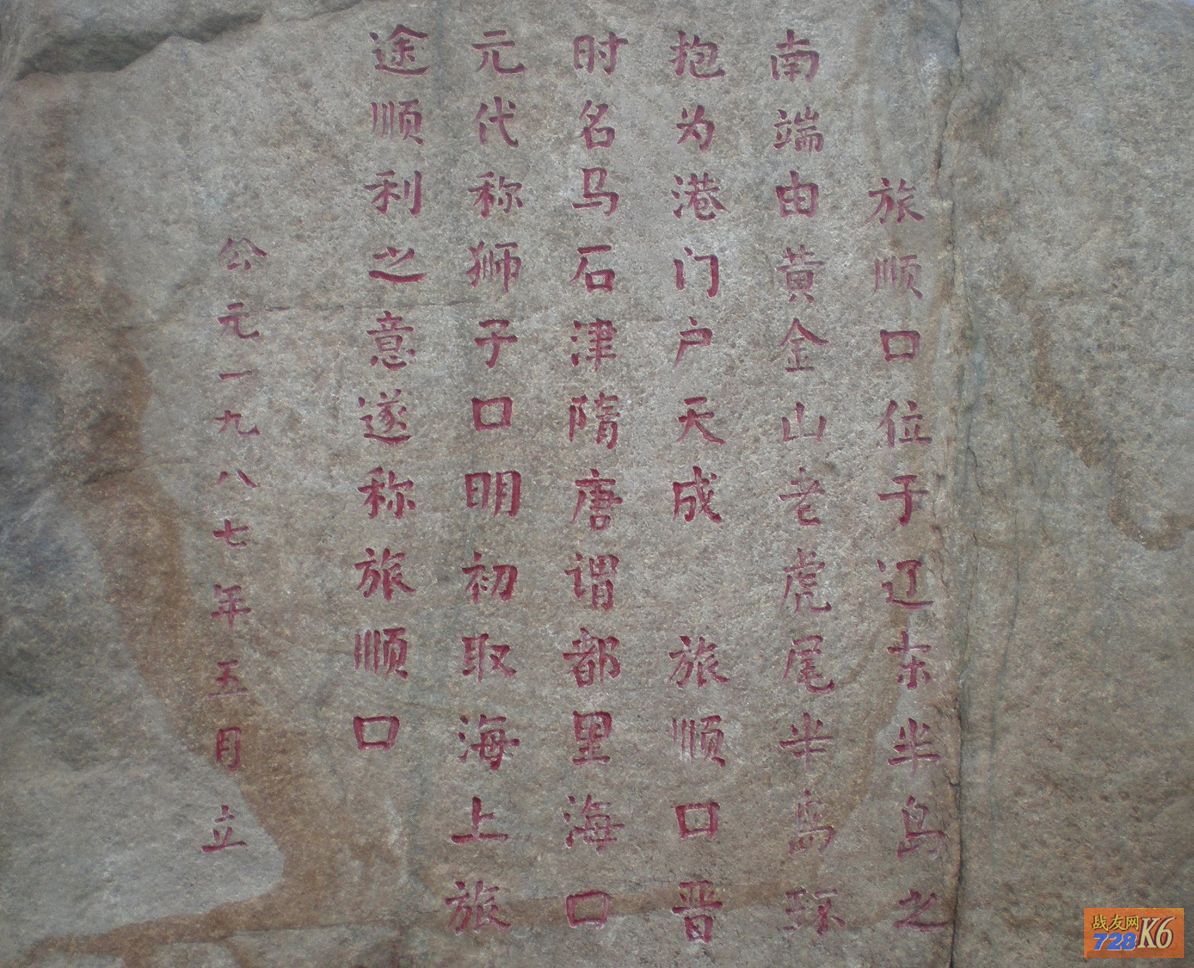 旅顺口位于辽东半岛之
南端由黄金山老虎尾半岛环
抱为港门户天成 旅顺口晋
时名马石津隋唐谓都里海口
元代称狮子口明初取海上旅
途顺利之意遂称旅顺口
公元一九八七年五月 立
战友网
728K6